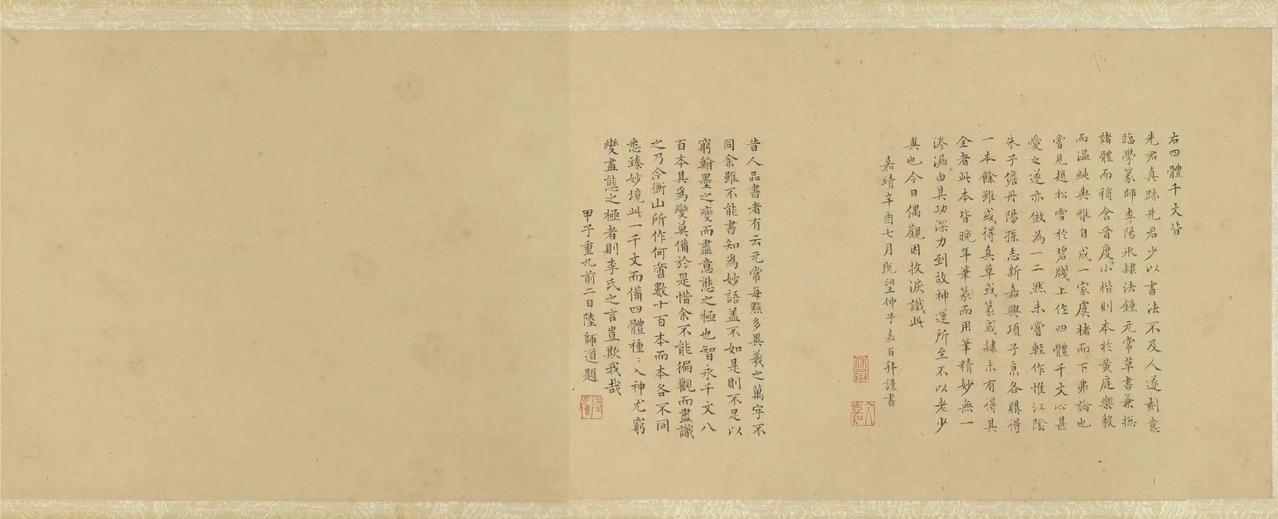 右四體千文皆
先君真跡先君少以書法不及人遂刻意
臨學篆師李陽冰隸法鍾元常草書兼撫
諸體而稍含晉度小楷則本於黃庭樂毅
而温純典雅自成一家虞褚而下弗論也
嘗見趙松雪於碧牋上作四體千文心甚
愛之遂亦倣為一二然未嘗輕作惟江陰
朱子儋丹陽孫志新嘉興項子京各購得
一本餘雖或得真草或篆或隸未有得其
全者此本皆晚年筆篆而用筆精妙無一
滲漏由其功深力到故神運所至不以老少
異也今日偶觀因抆淚識此
嘉靖辛酉七月既望仲子嘉百拜謹書
昔人品書者有云元常每點多異羲之萬字不
同余雖不能書知為妙語蓋不如是則不足以
窮翰墨之變而盡意態之極也智永千文八
百本其為變莫備於是惜余不能徧觀而盡識
之乃今衡山所作何啻數十百本而本各不同
悉臻妙境此一千文而備四體種:入神尤窮
變盡態之極者則李氏之言豈欺我哉
甲子重九前二日陸師道題